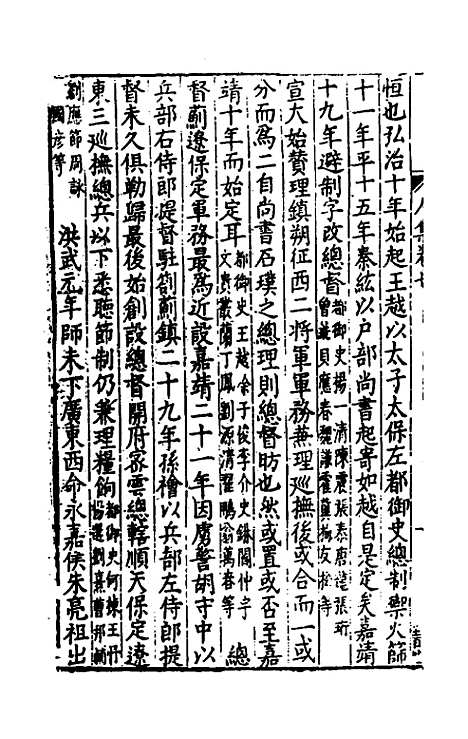 恒也弘治十年始起王越以太子太保左都御史總制與火篩
十一年平十五年秦紘以戶部尚書起寄如越自是定矣嘉靖
十九年避制字改總督都御史楊一清陳震張泰唐龍張珩
曾銑
宣大始贊理鎮朔征西二將軍軍務兼理巡撫後或合而一或
分而為二自尚書石璞之總理則總督昉也然或置或否至嘉
靖十年而始定耳都御史王越余子俊李介史銖閻仲宇
文貴叢蘭丁鳳劉源清翟鵬翁萬春等　總
督薊遼保定軍務最為近設嘉靖二十一年因虜警胡守中以
兵部右侍郎提督駐劄薊鎮二十九年孫禬以兵部左侍郎提
督未久俱勒歸最後始創設總督開府密雲總轄順天保定遼
東三巡撫總兵以下悉聽節制仍兼理糧餉都御史何棟王忬
楊選劉燾曹邦輔
劉應節周詠
國彥等　洪武元年師未下廣東西命永嘉侯朱亮祖出